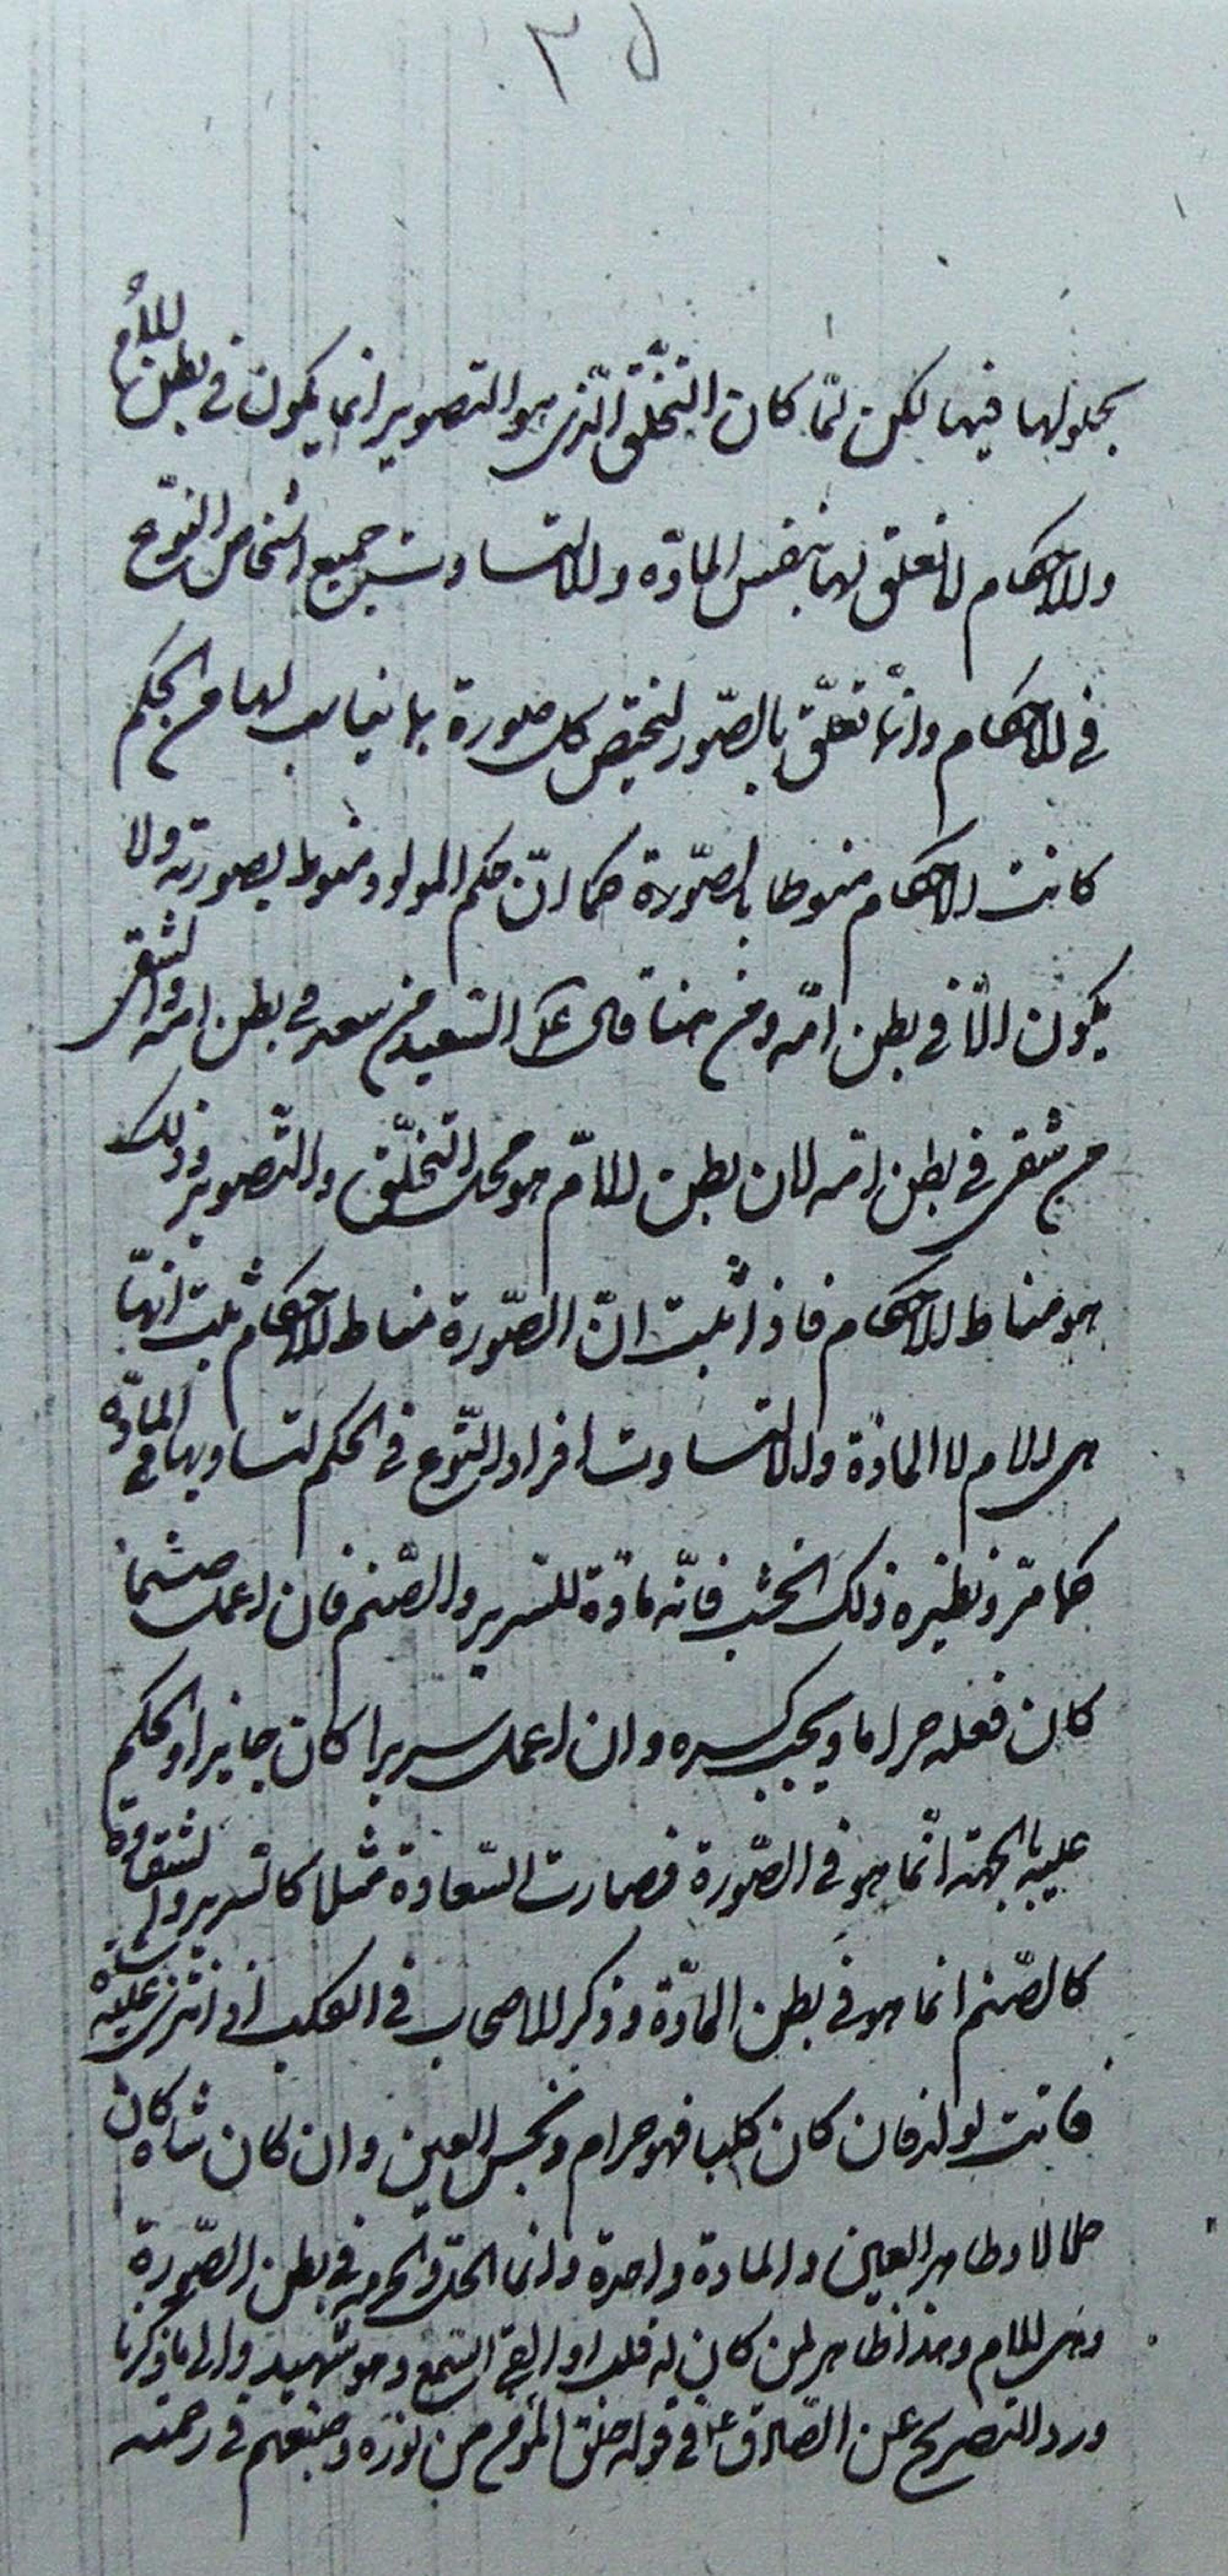 ٣٥
بحلولها فيها لكن لمّا كان التخلّق الّذى هو التصوير انما يكون فى بطن الأم
والاحكام لا تعلق لها بنفس المادّة والا لتساوت جميع اشخاص النّوع
فى الاحكام وانّما تعلّق بالصّور لتختص كل صورة بما يناسب لها من الحكم
كانت الاحكام منوطا بالصّورة كما انّ حكم المولود منوط بصورته ولا
يكون الّا فى بطن امّه ومن هنا قال ع السّعيد من سعد فى بطن امّه والشقى
من شقى فى بطن امّه لان بطن الامّ هو محل التخلّق والتّصوير وذلك
هو مناط الاحكام فاذا ثبت انّ الصّورة مناط الاحكام ثبت انّها
هى الام لا المادّة والا لتساوت افراد النّوع فى الحكم لتساويها فى المادّة
كما مرّ ونظيره ذلك الخشب فانّه مادّة للسّرير والصّنم فان اعمل صنما
كان فعله حراما ويجب كسره وان اعمل سريرا كان جايزا والحكم
عليه بالجهة انّما هو فى الصّورة فصارت السّعادة مثلا كالسّرير والشقاوة
كالصّنم انما هو فى بطن المادّة وذكر الاصحاب فى الكلب اذا نزى على شاة
فاتت بولد فان كان كلبا فهو حرام ونجس العين وان كان شاة كان
حلالا وطاهر العين والمادة واحدة وانما الحل والحرمة فى بطن الصّورة
وهى الام وهذا ظاهر لمن كان له قلب او القى السّمع وهو شهيد والى ما ذكرنا
ورد التصريح عن الصّادق ع فى قوله خلق المؤمن من نوره وصبغهم فى رحمته